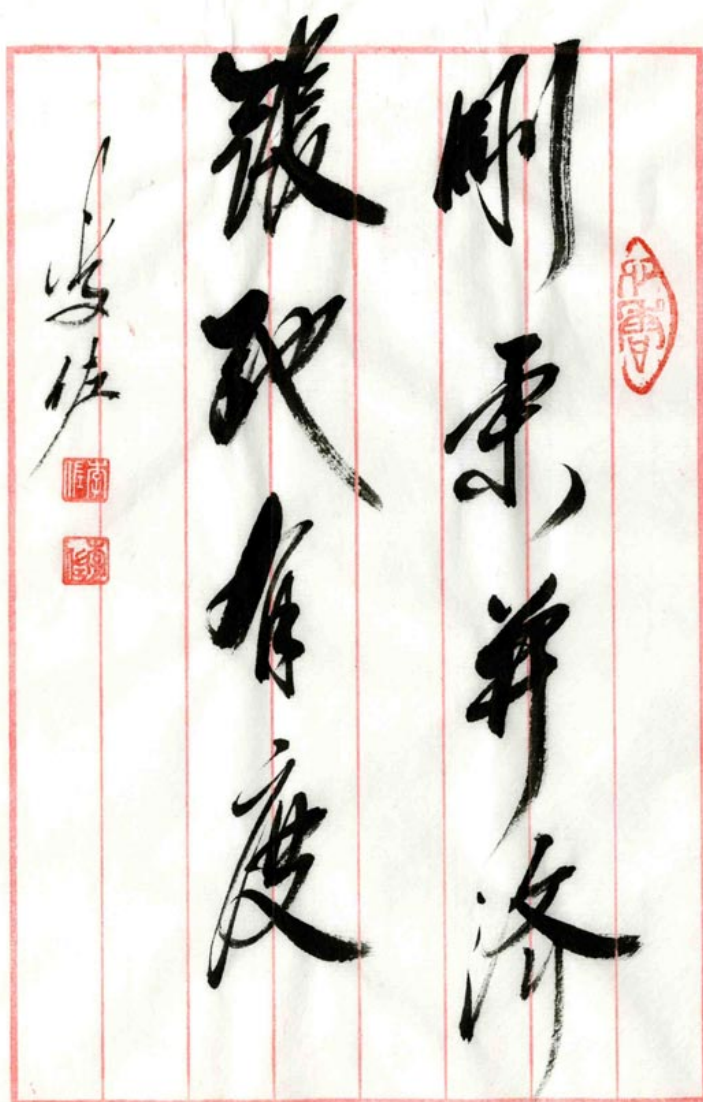 剛柔并济
張弛有度